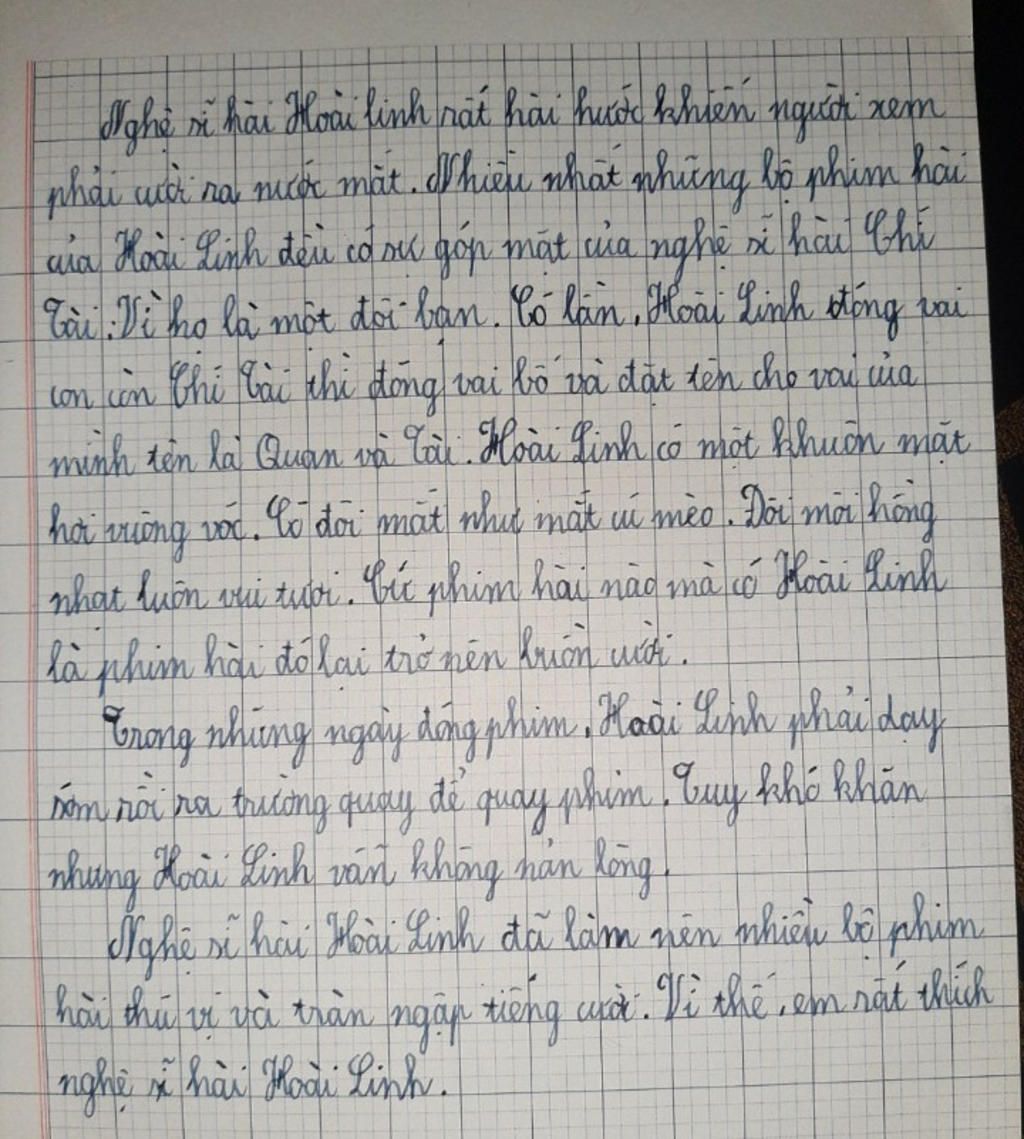 Nghệ sĩ hài Hoài linh rất hài hước khiến người xem
phải cười ra nước mắt. Nhiều nhất những bộ phim hài
của Hoài Linh đều có sự góp mặt của nghệ sĩ hài Chí
Tài. Vì họ là một đôi bạn. Có lần, Hoài Linh đóng vai
con còn Chí Tài thì đóng vai bố và đặt tên cho vai của
mình tên là Quan và Tài. Hoài Linh có một khuôn mặt
hơi vuông vóc. Có đôi mắt như mắt cú mèo. Đôi môi hồng
nhạt luôn vui tươi. Cứ phim hài nào mà có Hoài Linh
là phim hài đó lại trở nên buồn cười.
Trong những ngày đóng phim, Hoài Linh phải dạy
sớm rồi ra trường quay để quay phim. Tuy khó khăn
nhưng Hoài Linh vẫn không nản lòng.
Nghệ sĩ hài Hoài Linh đã làm nên nhiều bộ phim
hài thú vị và tràn ngập tiếng cười. Vì thế, em rất thích
nghệ sĩ hài Hoài Linh.